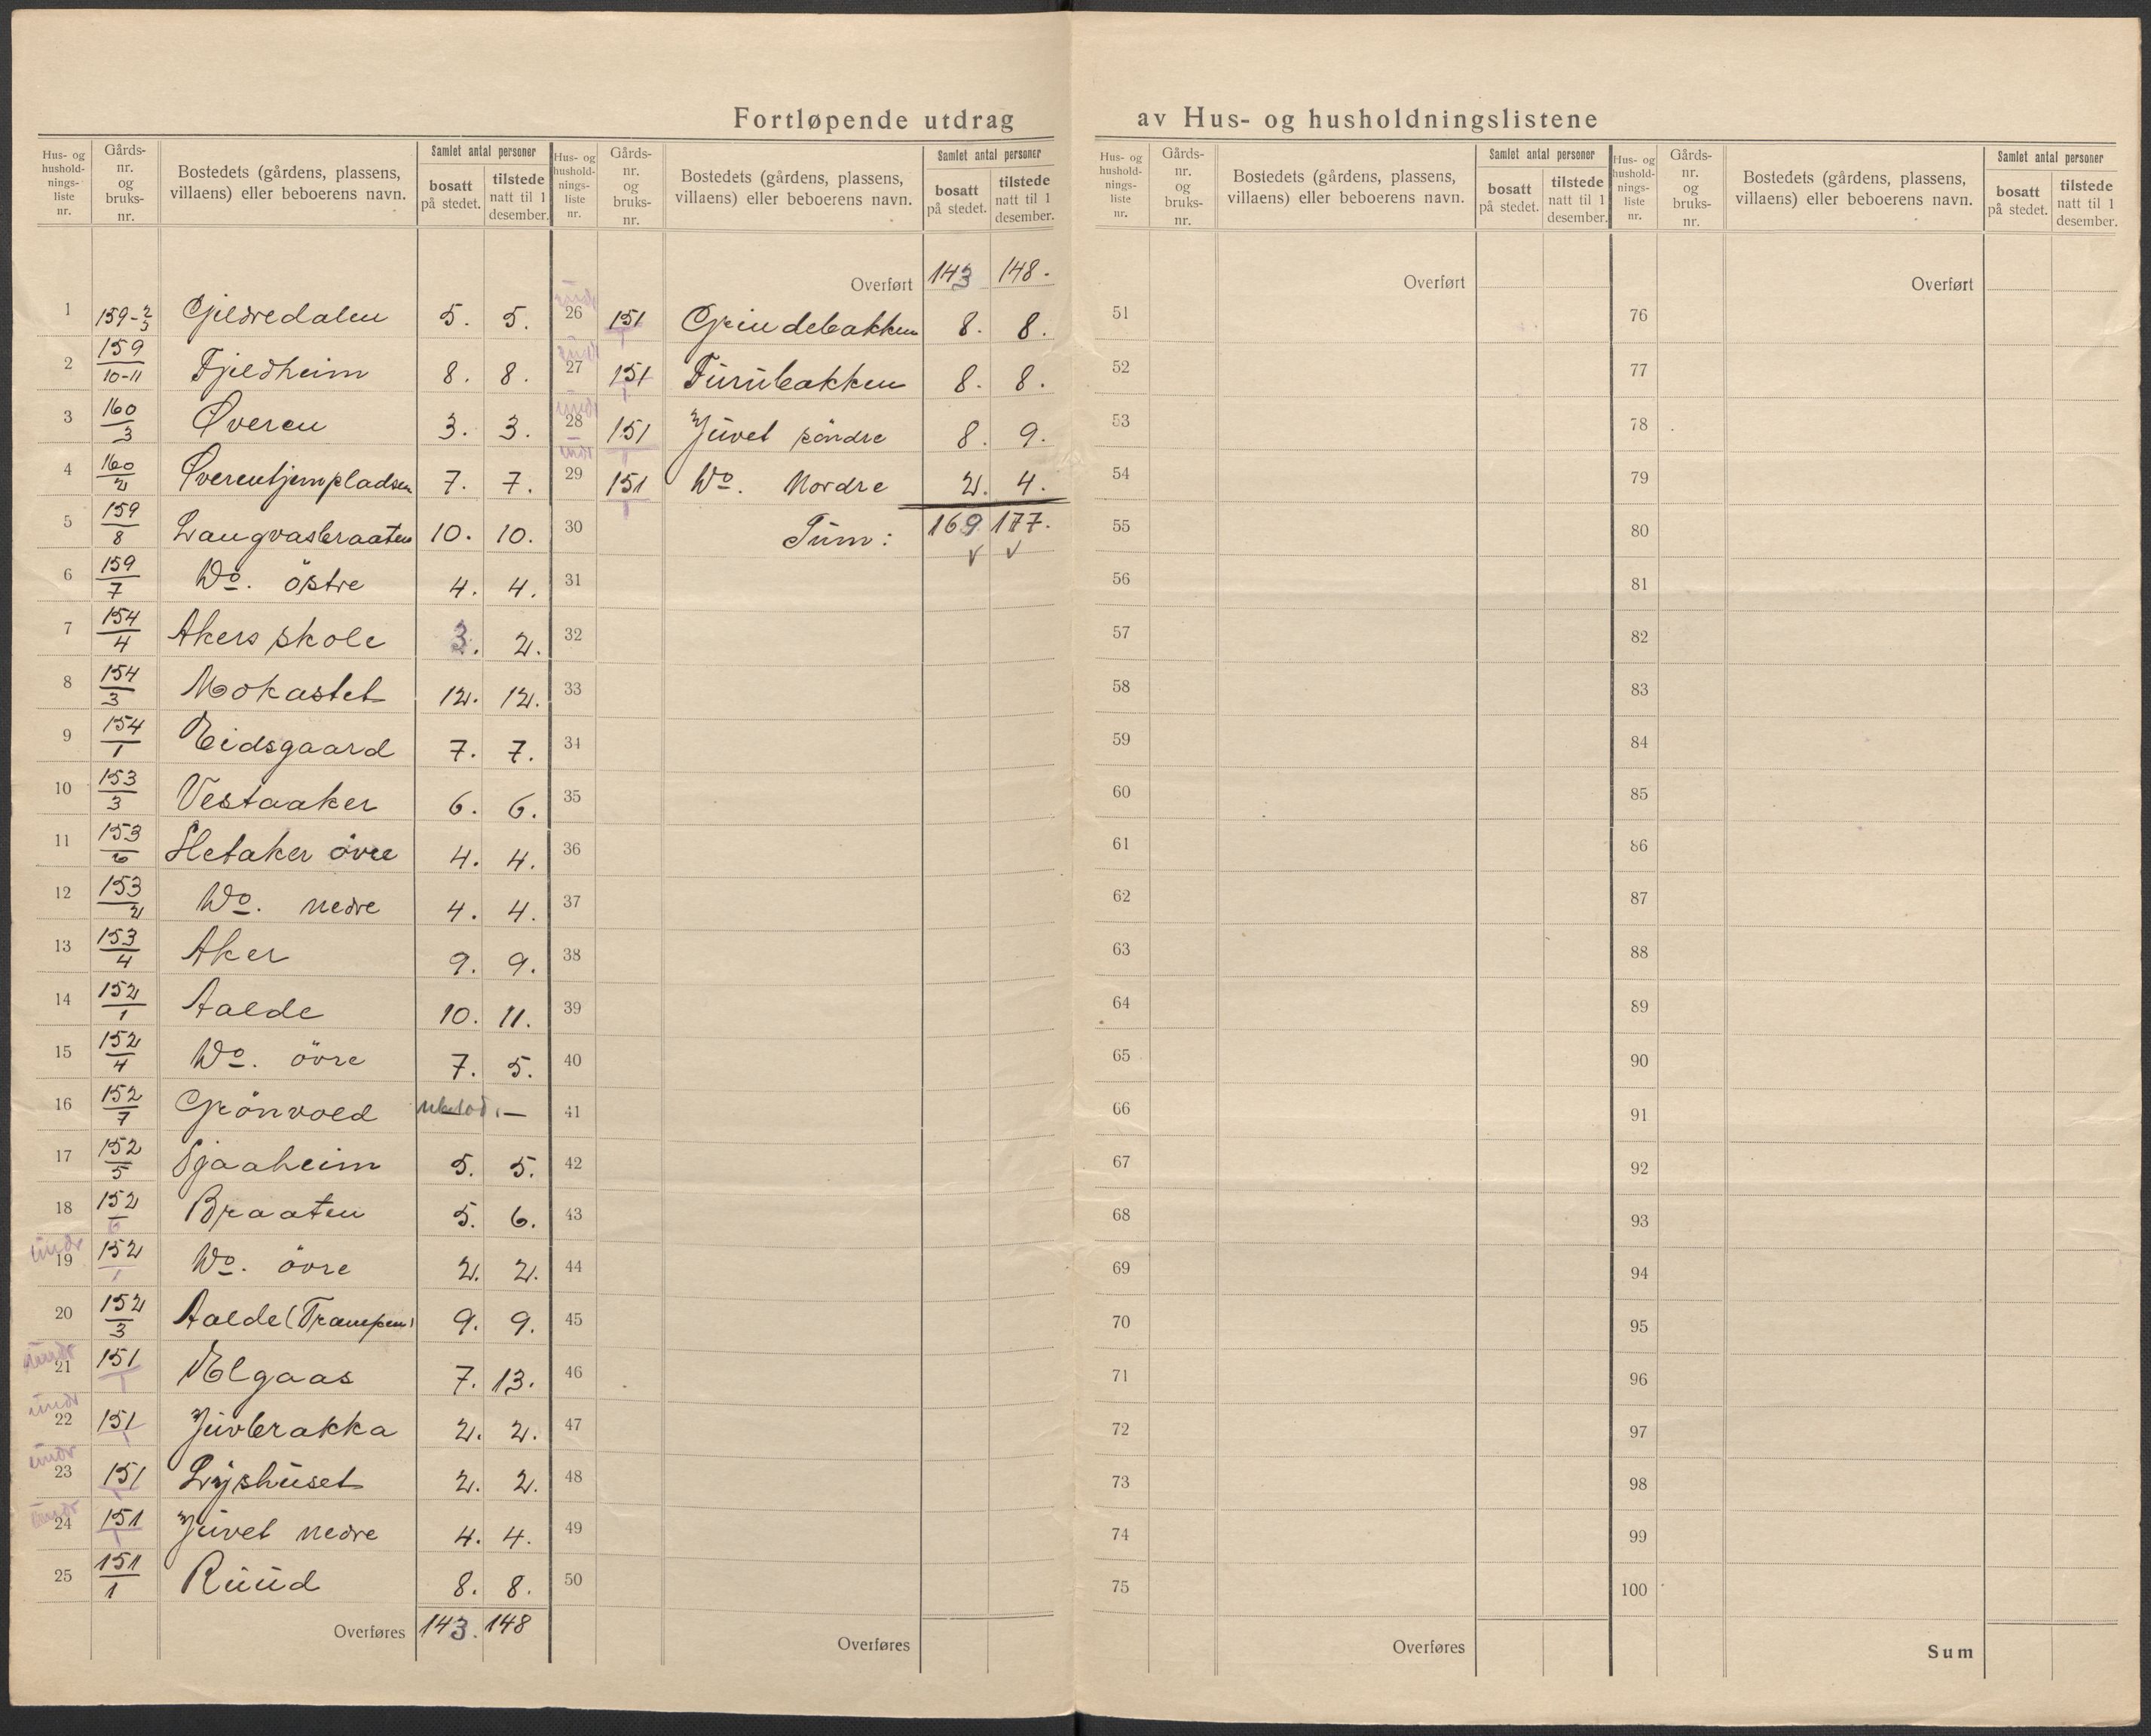 Fortløpende utdrag av Hus- og husholdningslistene
Hus- og husholdningsliste nr. | Gårdsnr. og bruksnr. | Bostedets (gårdens, plassens, villaens) eller beboerens navn. | Samlet antal personer: bosatt på stedet. | tilstede natt til 1 desember.
1 159-2/3 Gjeldredalen 5. 5.
2 159/10-11 Fjeldheim 8. 8.
3 160/3 Øveren 3. 3.
4 160/2 Øverentjernpladsen 7. 7.
5 159/8 Langvasbraaten 10. 10.
6 159/7 Do. östre 4. 4.
7 154/4 Akers skole 3. 2.
8 154/3 Mokastet 12. 12.
9 154/1 Eidsgaard 7. 7.
10 153/3 Vestaaker 6. 6.
11 153/6 Sletaker övre 4. 4.
12 153/2 Do. nedre 4. 4.
13 153/4 Aker 9. 9.
14 152/1 Aalde 10. 11.
15 152/4 Do. övre 7. 5.
16 152/7 Grönvold —
17 152/5 Sjaaheim 5. 5.
18 152/6 Braaten 5. 6.
undr
19 152/1 Do. övre 2. 2.
20 152/3 Aalde (Trampen) 9. 9.
undr
21 151/1 Elgaas 7. 13.
undr
22 151/1 Juvbrakka 2. 2.
undr
23 151/1 Lyshuset 2. 2.
undr
24 151/1 Juvet nedre 4. 4.
25 151/1 Ruud 8. 8.
Overføres 143. 148
Hus- og husholdningsliste nr. | Gårdsnr. og bruksnr. | Bostedets (gårdens, plassens, villaens) eller beboerens navn. | Samlet antal personer: bosatt på stedet. | tilstede natt til 1 desember.
Overført 143 148.
undr
26 151/1 Grindebakken 8. 8.
undr
27 151/1 Furubakken 8. 8.
undr
28 151/1 Juvet söndre 8. 9.
undr
29 151/1 Do. Nordre 2. 4.
30 Sum: 169. 177.
31
32
33
34
35
36
37
38
39
40
41
42
43
44
45
46
47
48
49
50
Overføres
Hus- og husholdningsliste nr. | Gårdsnr. og bruksnr. | Bostedets (gårdens, plassens, villaens) eller beboerens navn. | Samlet antal personer: bosatt på stedet. | tilstede natt til 1 desember.
Overført
51
52
53
54
55
56
57
58
59
60
61
62
63
64
65
66
67
68
69
70
71
72
73
74
75
Overføres
Hus- og husholdningsliste nr. | Gårdsnr. og bruksnr. | Bostedets (gårdens, plassens, villaens) eller beboerens navn. | Samlet antal personer: bosatt på stedet. | tilstede natt til 1 desember.
Overført
76
77
78
79
80
81
82
83
84
85
86
87
88
89
90
91
92
93
94
95
96
97
98
99
100
Sum